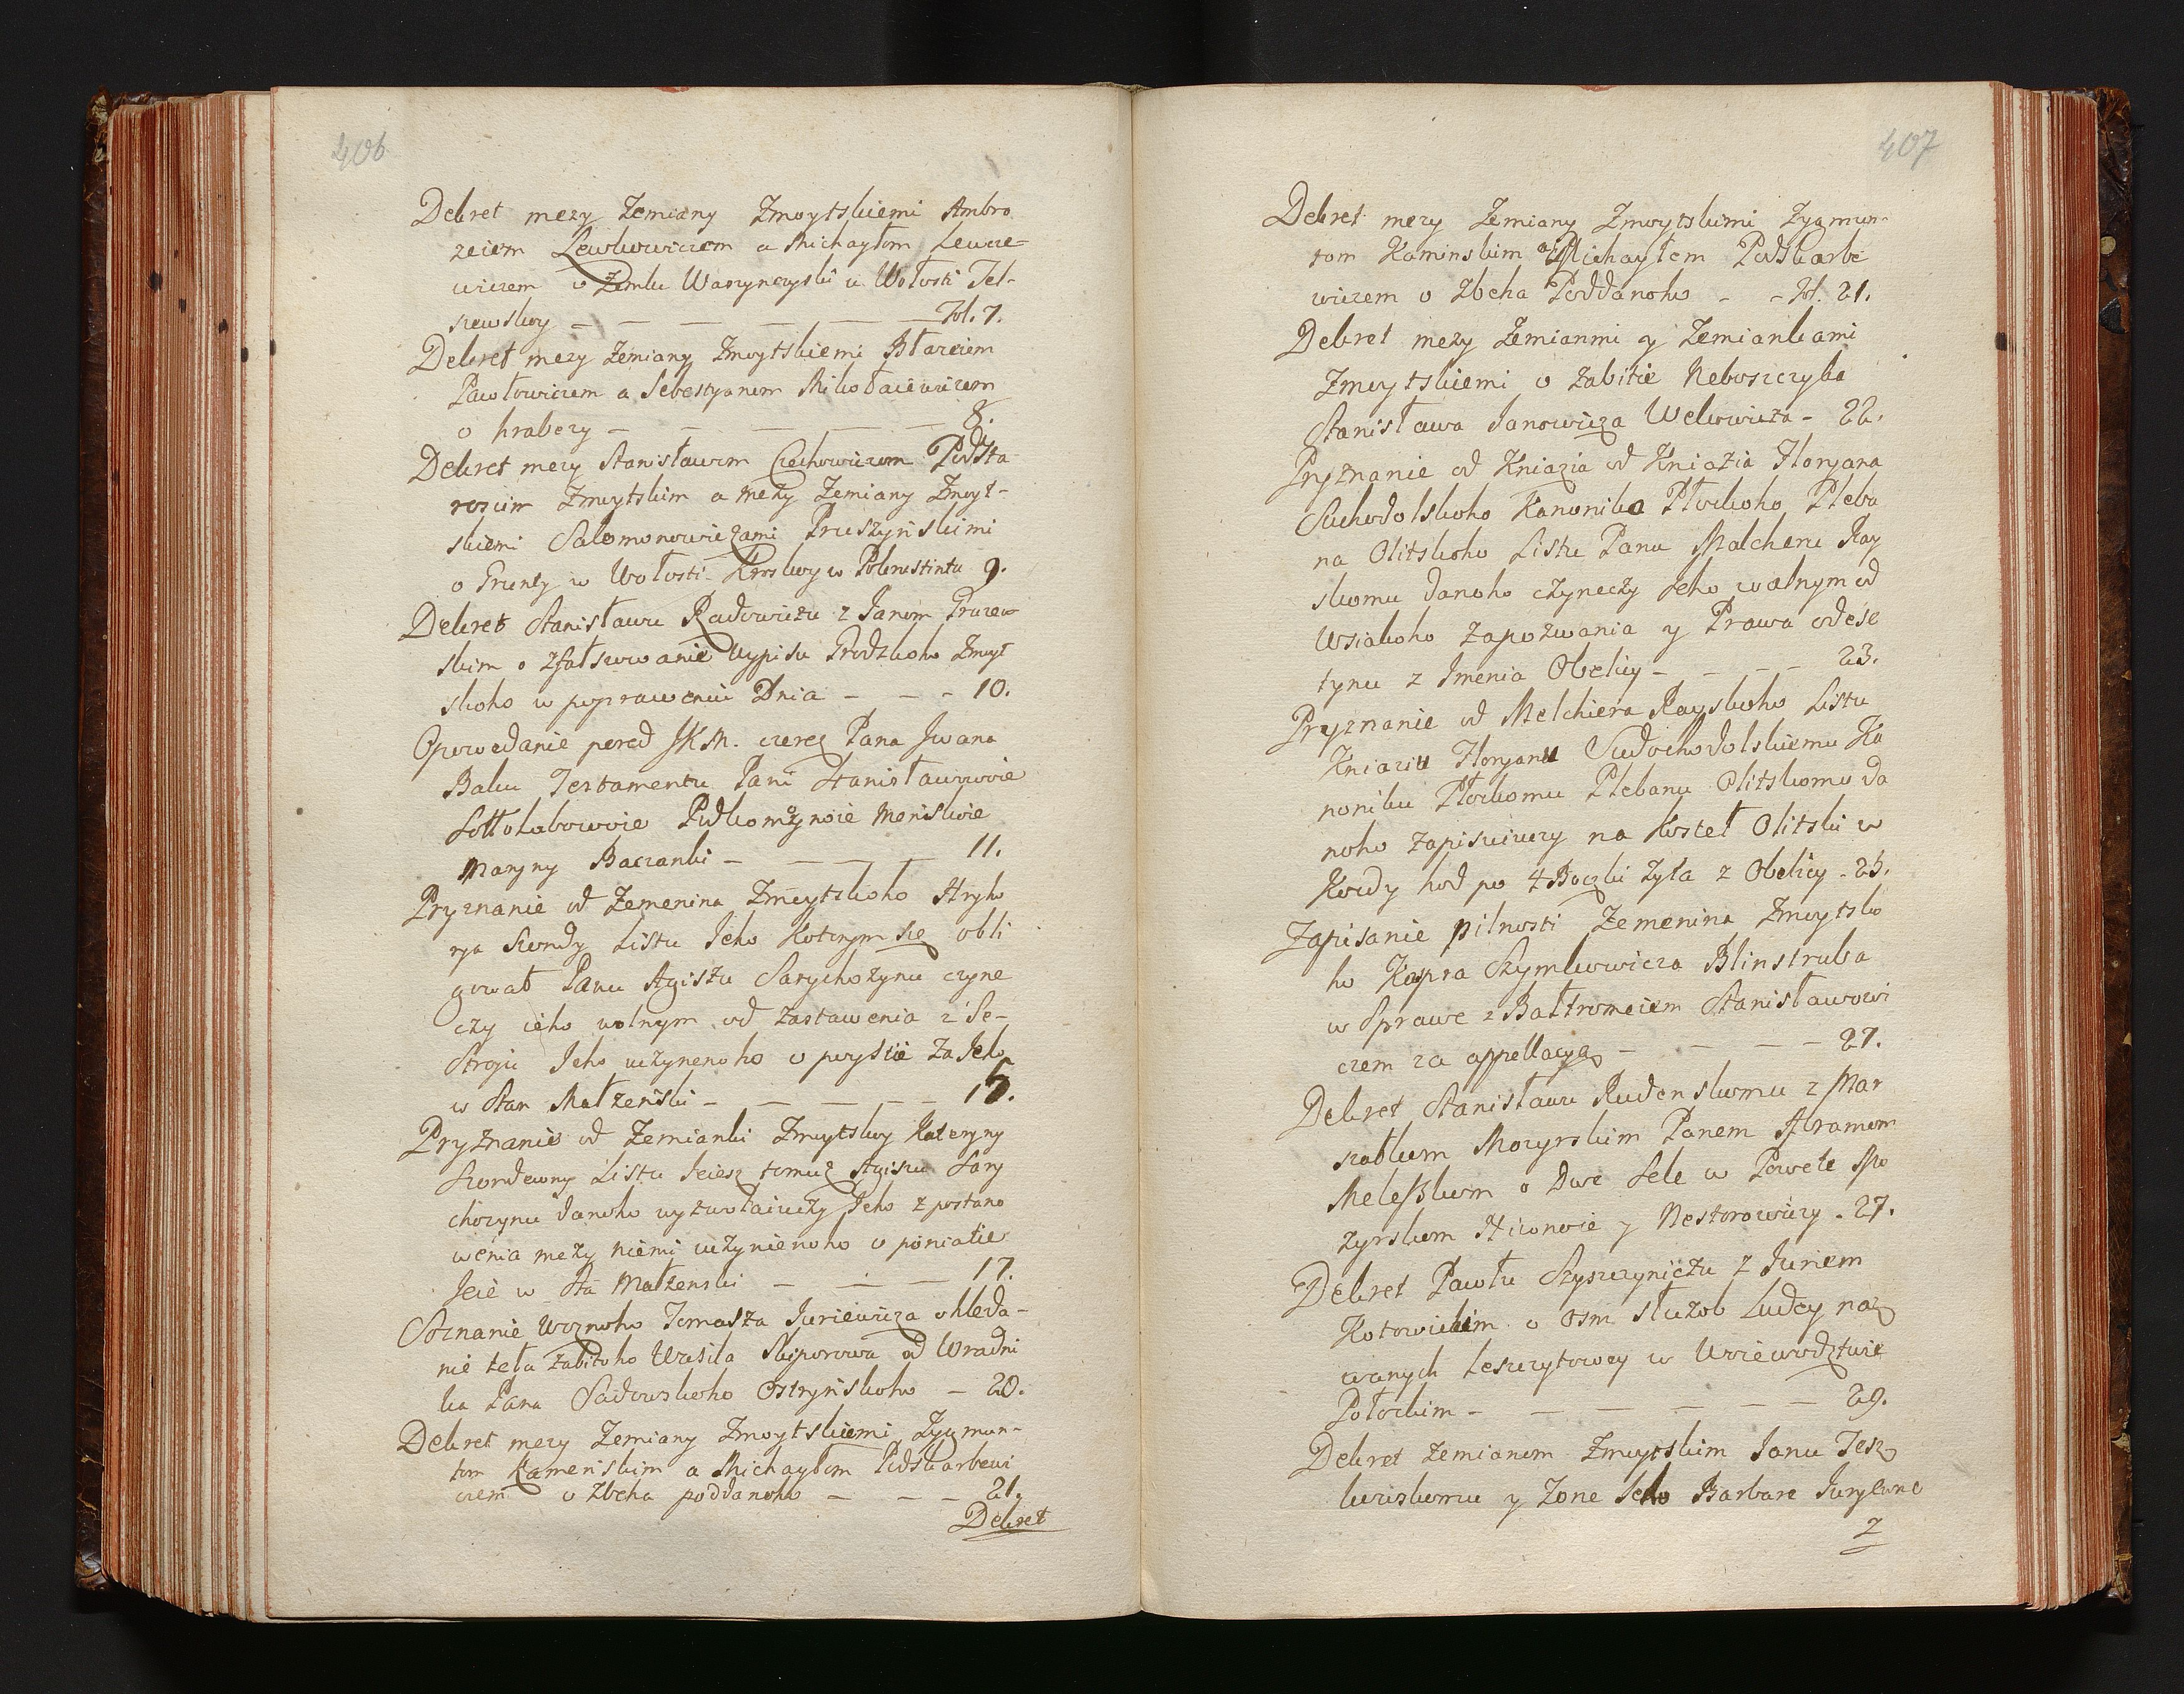 406
Dekret mezy Zemiany Zmoytskiemi Ambro
zeiem Lewkowiczem a Michayłom Lewcze-
wiczem o Zemlu Warzynczyski u Wołosti Tel-
szewskoy — — — — — Fol. 7.
Dekret mezy Zemiany Zmoytskiemi Błazeiem
Pawłowiczem a Sebestyanom Mikołaiewiczom
o hrabezy — — — — — 8.
Dekret mezy Stanisławom Czechowiczom Podsta
rosim Zmoytskim a mezy Zemiany Zmoyt-
skiemi Salomonowiczami Pruszynskimi
o Grunty w Wołosti Kroskoy w Poknustintu 9.
Dekret Stanisławu Radowiczu z Janom Gruzew
skim o zfałszowanie Wypisu Grodzkoho Zmoyt
skoho w popraweniu Dnia — — - 10.
Opowedanie pered JKM. czerez Pana Iwana
Baku Testamentu Pani Stanisławowoie
Sołtohubowoie Podkomorzynoie Menskoie
Maryny Baczanki — — — — 11.
Pryznanie od Zemenina Zmoytskoho Hryho
rya Skordy Listu Jeho Kotorym sie obli
gował Panu Agiszu Sarychozynu czyne
czy ieho wolnym od zastawenia z Se-
stroju Jeho uczynenoho o poystie za Jeho
w Stan Małzenski — — — — — 15.
Pryznanie od Zemianki Zmoytskoy Kateryny
Skordewny Listu Jeiesz tomuz Agiszu Sary
chozynu danoho wyzwolaiuczy Jeho z postano
wenia mezy niemi uczynienoho o poniatie
Jeie w Sta Małzenski — — — 17.
Soznanie Woznoho Tomasza Juriewicza ohleda-
nie teła zabitoho Wasila Skiporowa od Wradni
ka Pana Sadowskoho Ostrynskoho — 20.
Dekret mezy Zemiany Zmoytskiemi Zygmun-
tom Kamenskim a Michayłom Podskarbewi
czem o zbeha poddanoho — — — 21.
Dekret
407
Dekret mezy Zemiany Zmoytskimi Zygmun-
tom Kaminskim a Michayłem Podskarbe
wiczem o Zbeha Poddanoho - - Fol. 21.
Dekret mezy Zemianmi y Zemiankami
Zmoytskiemi o zabitie Neboszczyka
Stanisława Janowicza Welowicza - 22.
Pryznanie od Kniazia od Kniazia Floryana
Suchodolskoho Kanonika Płockoho Pleba
na Olitskoho Listu Panu Malcheru Ray
skomu danoho czyneczy Jeho walnym od
Wsiakoho zapozwania y Prawa odese
tynu z Jmenia Obelicy - - - - 23.
Pryznanie od Melchiera Rayskoho Listu
Kniaziu Floryanu Sudochodolskiemu Ka
noniku Płockomu Plebanu Olitskomu da
noho zapisuiuczy na Kosteł Olitski w
Kozdy hod po 4 Boczki zyta z Obelicy - 25.
Zapisanie pilnosti Zemenina Zmoytsko
ho Kaspra Szymkowicza Blinstruba
w Sprawe z Bałtromeiem Stanisławowi
czem za appellacyą — — — - 27.
Dekret Stanisławu Rudenskomu z Mar
szałkiem Mozyrskim Panem Abramom
Meleszkom o Dwe Sele w Powete Mo
zyrskom Hiconowie y Nestorowiczy - 27.
Dekret Pawłu Szyszczyniczu z Juriem
Kotowiczim o osm słuzob Ludey naz
wanych Leszczytowcy w Woiewodztwie
Połockim — — — — — — 29.
Dekret zemianom Zmoytskim Janu Jesz
kowiskomu y Zone Jeho Barbare Juryewne
z